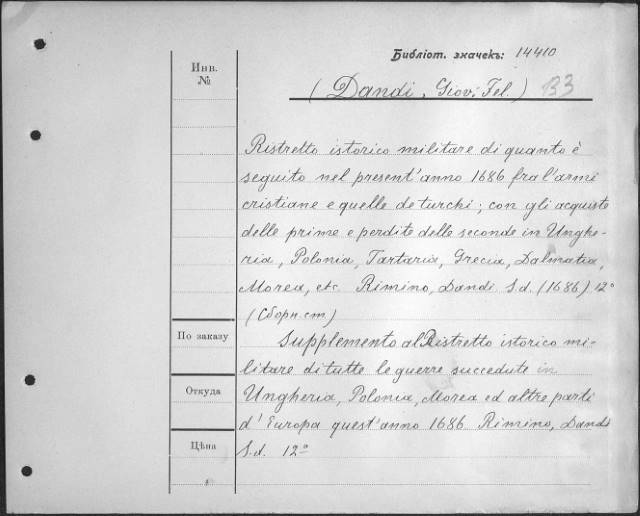 Библіот. значекъ: 14410
Инв.
№
(Dandi, Giov. Fel.) B3
Ristretto istorico militare di quanto è
seguito nel present'anno 1686 fra l'armi
cristiane e quelle de turchi; con gli acquiste
delle prime e perdite delle seconde in Unghe-
ria, Polonia, Tartaria, Grecia, Dalmatia,
Morea, etc. Rimino, Dandi S.d. (1686) 12°
(Сборн. ст.)
По заказу
Supplemento al Ristretto istorico mi-
litare di tutte le guerre succedute in
Откуда
Ungheria, Polonia, Morea ed altre parti
d'Europa quest'anno 1686 Rimino, Dandi
Цѣна
S.d. 12°